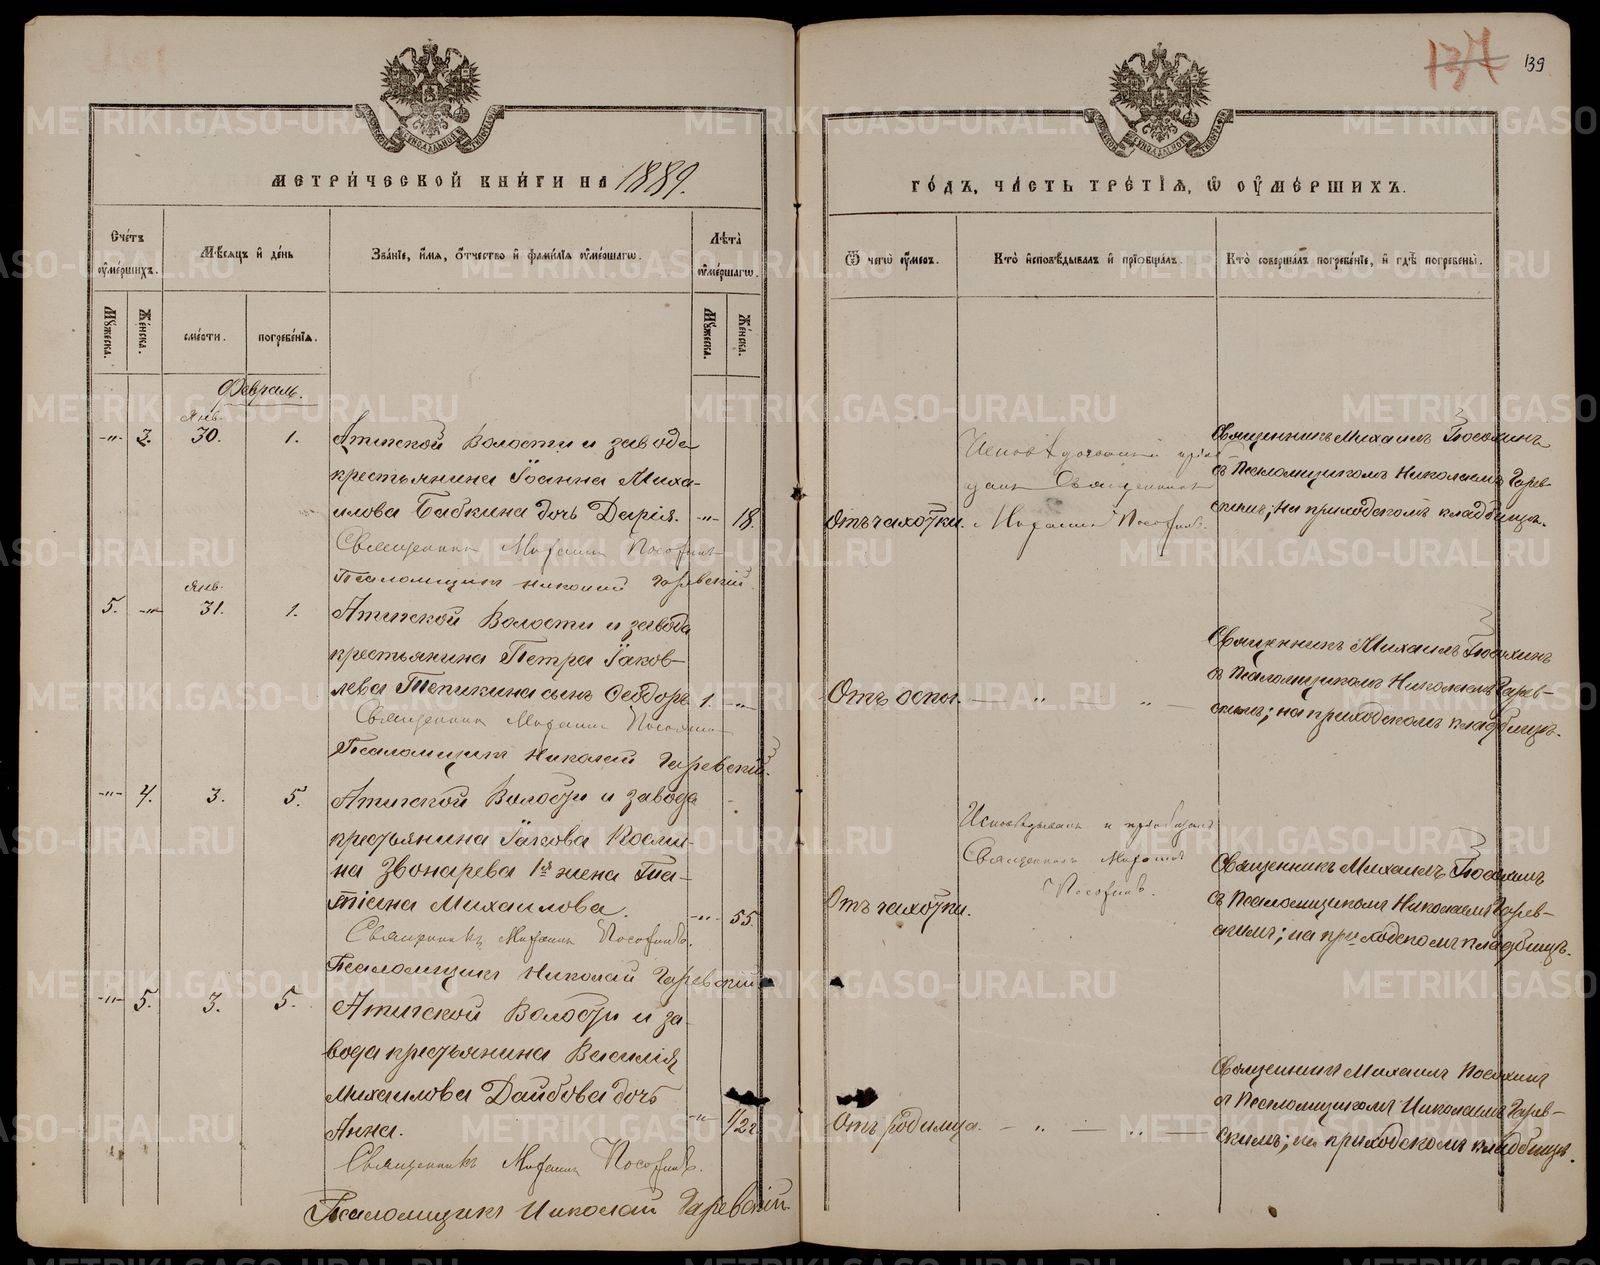 137 139
МЕТРИ́ЧЕСКОЙ КНИ́ГИ НА 1889.
ГО́ДЪ, ЧА́СТЬ ТРЕ́ТІѦ, Ѿ ОУ҆МЕ́РШИХЪ.
Сче́тъ оу҆ме́ршихъ.
Мѣ́сяцъ и҆ де́нь
Зва́ніе, и҆́мя, ѻ҆́тчество и҆ фами́лія оу҆ме́ршагѡ.
Лѣ́та оу҆ме́ршагѡ.
Ѿ чегѡ̀ оу҆́меръ.
Кто̀ и҆сповѣ́дывалъ и҆ пріобща́лъ.
Кто̀ соверша́лъ погребе́ніе, и҆ гдѣ̀ погребены̀.
Мꙋ́жеска.
Же́нска.
сме́рти.
погребе́нія.
Мꙋ́жеска.
Же́нска.
Февраль.
Янв.
-"- 3. 30. 1. Атигской Волости и завода
крестьянина Іоанна Миха-
илова Бабкина дочь Дарія. -"- 18.
Священник Михаил Посохин
Псаломщик Николай Гаревскій.
Отъ чахотки.
Священник
Михаил Посохинъ.
Священникъ Михаилъ Посохинъ
съ Псаломщикомъ Николаемъ Гарев-
скимъ; на приходскомъ кладбищѣ.
Янв.
5. -"- 31. 1. Атигской Волости и завода
крестьянина Петра Іаков-
лева Тепикина сынъ Ѳеодоръ 1. -"-
Священник Михаил Посохин
Псаломщик Николай Гаревскій.
Отъ оспы. — " — " —
Священникъ Михаилъ Посохинъ
съ Псаломщикомъ Николаемъ Гарев-
скимъ; на приходскомъ кладбищѣ.
-"- 4. 3. 5. Атигской Волости и завода
крестьянина Іакова Косми-
на Звонарева 1я жена Та-
тіана Михаилова. -"- 55.
Священникъ Михаил Посохинъ.
Псаломщик Николай Гаревскій
Отъ чахотки.
Исповѣдывалъ и пріобщалъ
Священникъ Михаилъ
Посохинъ.
Священникъ Михаилъ Посохинъ
съ Псаломщикомъ Николаемъ Гарев-
скимъ; на приходскомъ кладбищѣ.
-"- 5. 3. 5. Атигской Волости и за-
вода крестьянина Василія
Михаилова Дайбова дочь
Анна. -"- 1/2 г.
Священникъ Михаил Посохинъ.
Псаломщикъ Николай Гаревскій.
Отъ родимца. — " — " —
Священникъ Михаилъ Посохинъ
съ Псаломщикомъ Николаемъ Гарев-
скимъ; на приходскомъ кладбищѣ.
METRIKI.GASO-URAL.RU